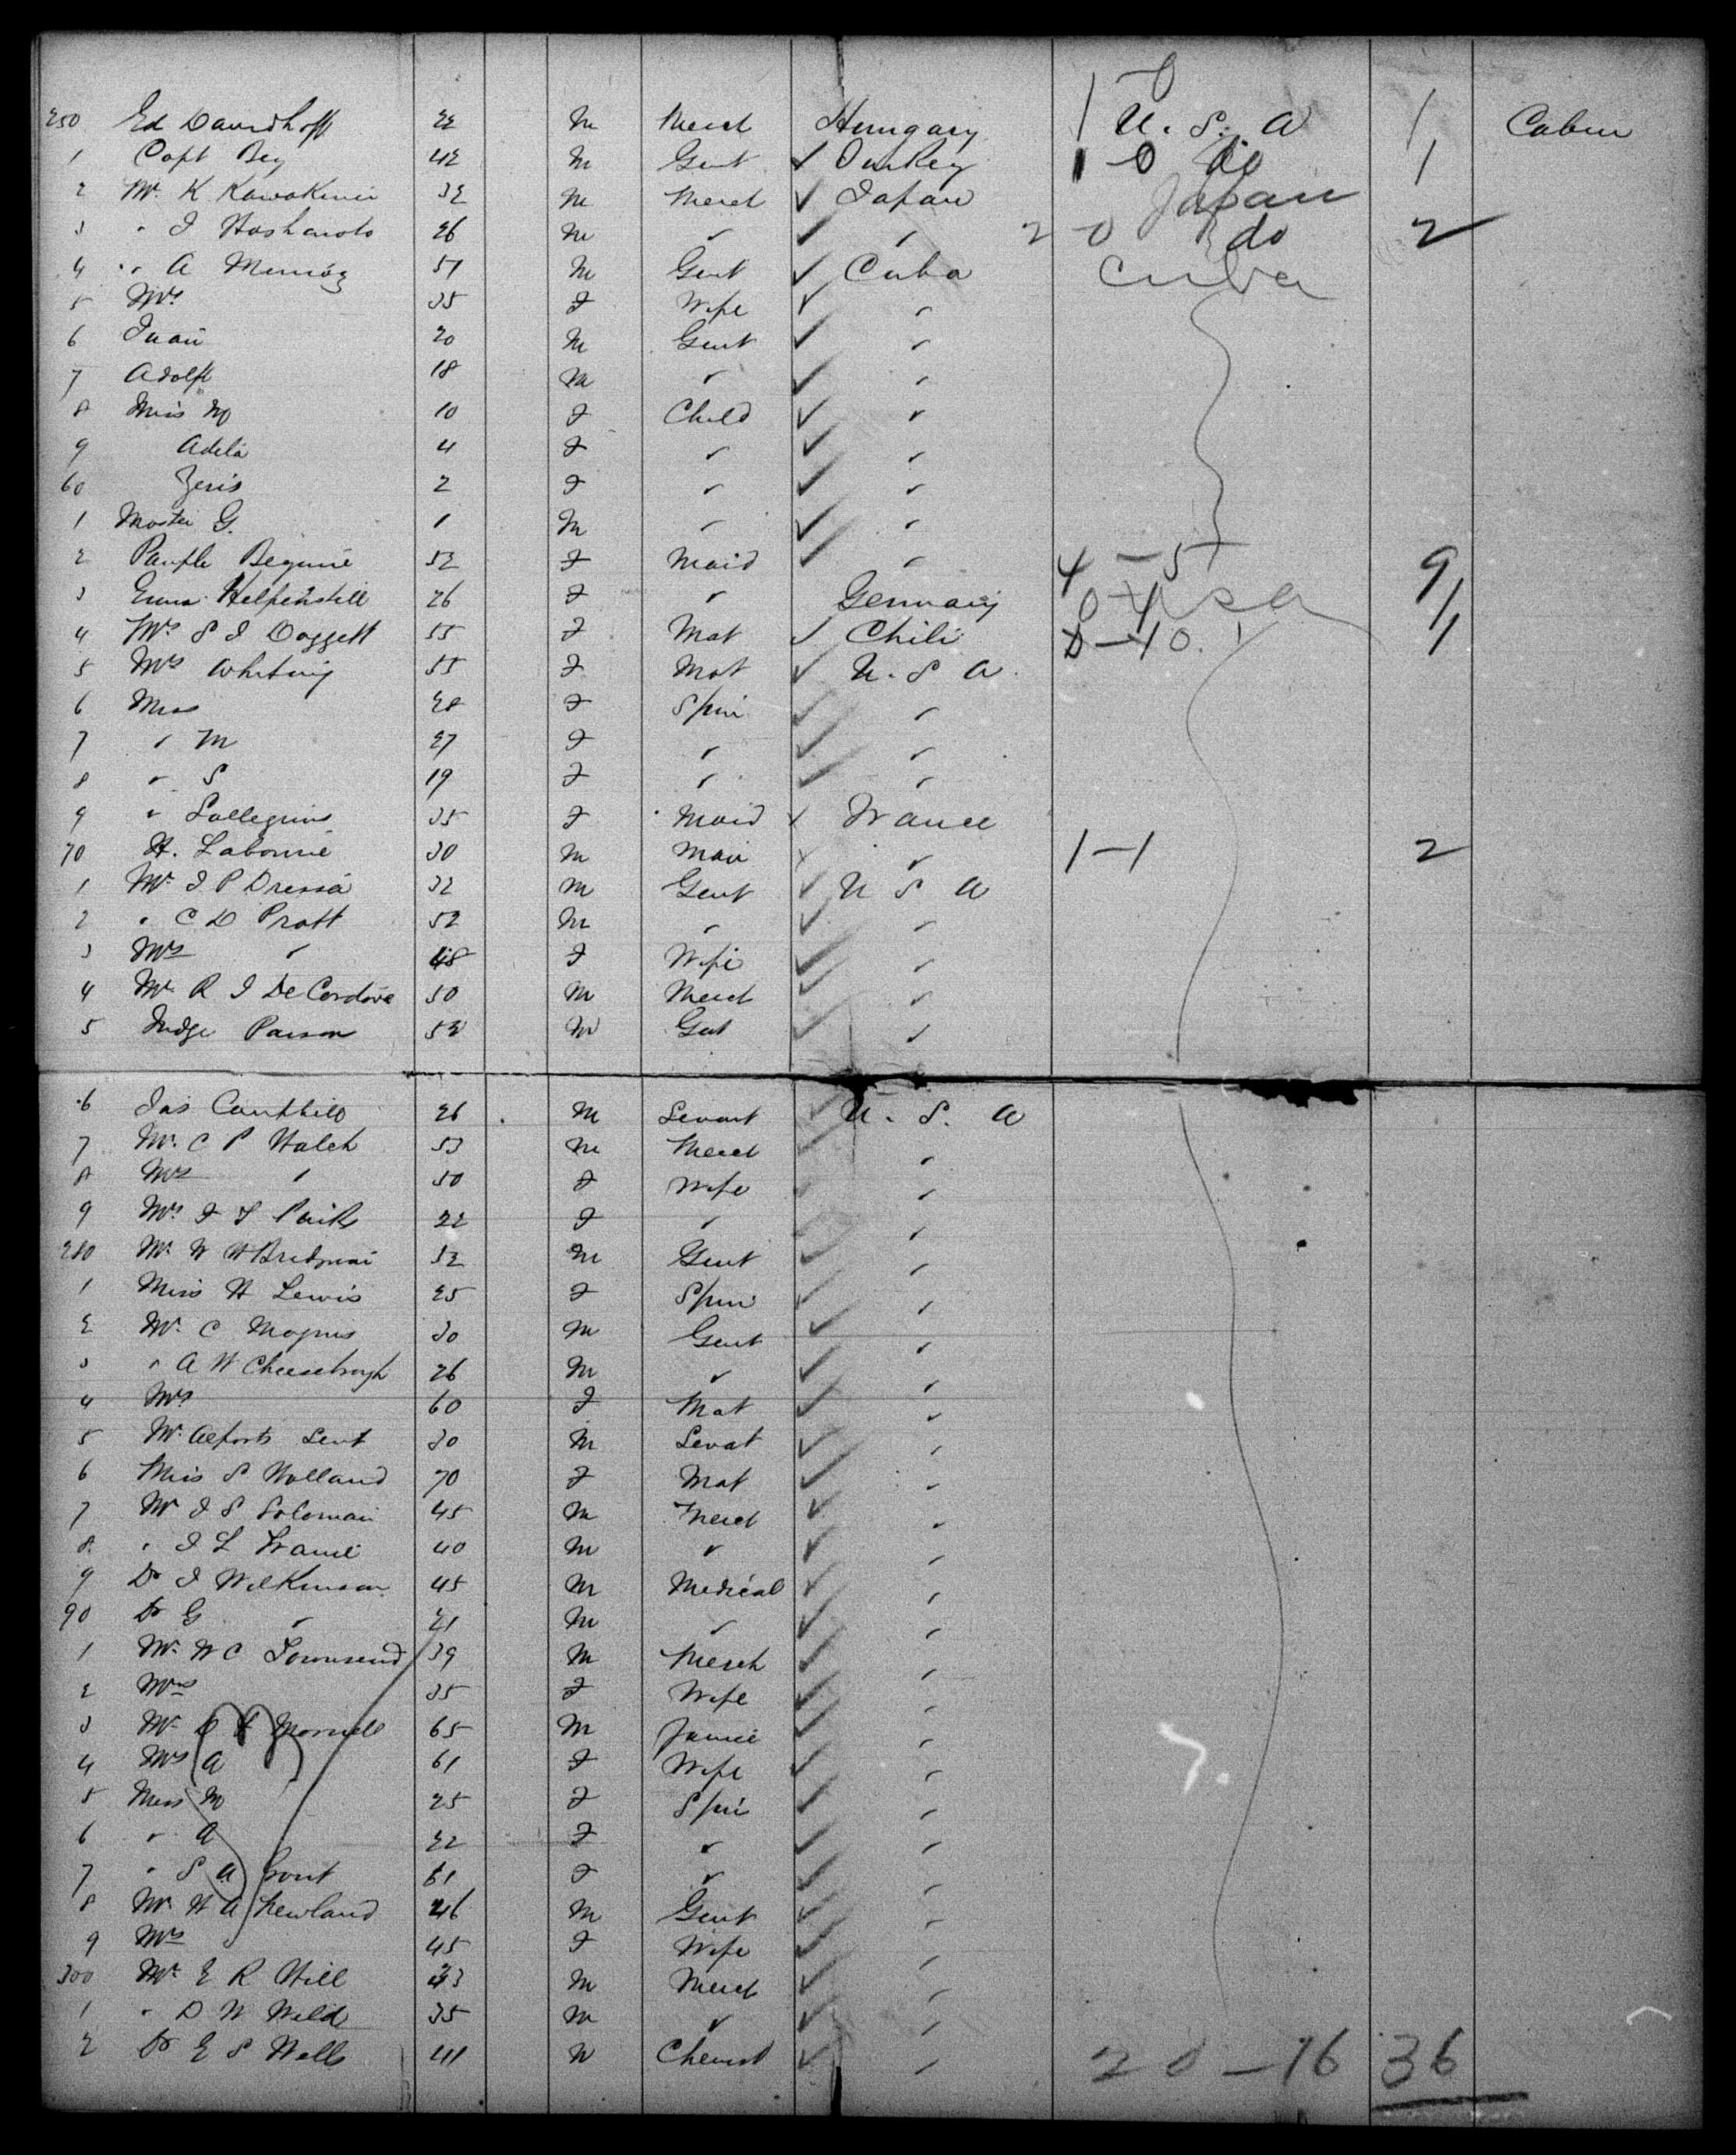 250 Ed Davidhoff 22 M Merct Hungary 1-0 U. S. A 1 Cabin
1 Capt Bey 42 M Gent ✓ Turkey 1-0 do 1
2 Mr. K Kawakami 32 M Merct ✓ Japan Japan
3 " I Hashamoto 26 M " ✓ " 2-0 do 2
4 " A Munioz 51 M Gent ✓ Cuba Cuba
5 Mrs 35 F Wife ✓ "
6 Juan 20 M Gent ✓ "
7 Adolf 18 M " ✓ "
8 Miss M 10 F Child ✓ "
9 Adela 4 F " ✓ "
60 2 F " ✓ "
1 Master G. 1 M " ✓ "
2 52 F Maid ✓ " 4-5 9
3 Emma Helfenstell 26 F " Germany 0-1 U S A 1
4 Mrs S J Doggett 55 F Mat ✓ Chili 0-1 0. 1
5 Mrs Whiting 55 F Mat ✓ U. S A
6 Miss 28 F Spin ✓ "
7 " M 27 F " ✓ "
8 " S 19 F " ✓ "
9 " 35 F Maid France
70 H. Labonne 30 M Man " 1-1 2
1 Mr. J P Dressa 32 M Gent ✓ U S A
2 " C D Pratt 52 M " ✓ "
3 Mrs " 48 F Wife ✓ "
4 Mr R J De Cordova 50 M Merct ✓ "
5 Judge Parson 52 M Gent ✓ "
6 Jas Canthill 26 M Servant U. S. A
7 Mr. C P Hatch 53 M Merct "
8 Mrs " 50 F Wife "
9 Mrs F 22 F " "
280 Mr W H Bridgman 32 M Gent ✓ "
1 Miss H Lewis 25 F Spin ✓ "
2 Mr. C Magnis 30 M Gent ✓ "
3 " A W Cheesebrough 26 M " ✓ "
4 Mrs 60 F Mat ✓ "
5 Mr. 30 M Servat ✓ "
6 Miss S Holland 70 F Mat ✓ "
7 Mr J S Soloman 45 M Merct ✓ "
8 " J L 40 M " ✓ "
9 Dr J Wilkinson 45 M Medical ✓ "
90 Dr G " 21 M " ✓ "
1 Mr. W C Townsend 39 M Merch ✓ "
2 Mrs 35 F Wife ✓ "
3 Mr D 65 M ✓ "
4 Mrs A 61 F Wife ✓ "
5 Miss M 25 F Spin ✓ "
6 " A 22 F " ✓ "
7 " S A Grout 61 F " ✓ "
8 Mr H A Newland 46 M Gent ✓ "
9 Mrs 45 F Wife ✓ "
300 Mr E R Hill 43 M Merct ✓ "
1 " D W Weld 35 M " ✓ "
2 Dr E S Wells 41 M Chemist ✓ " 20-16 36